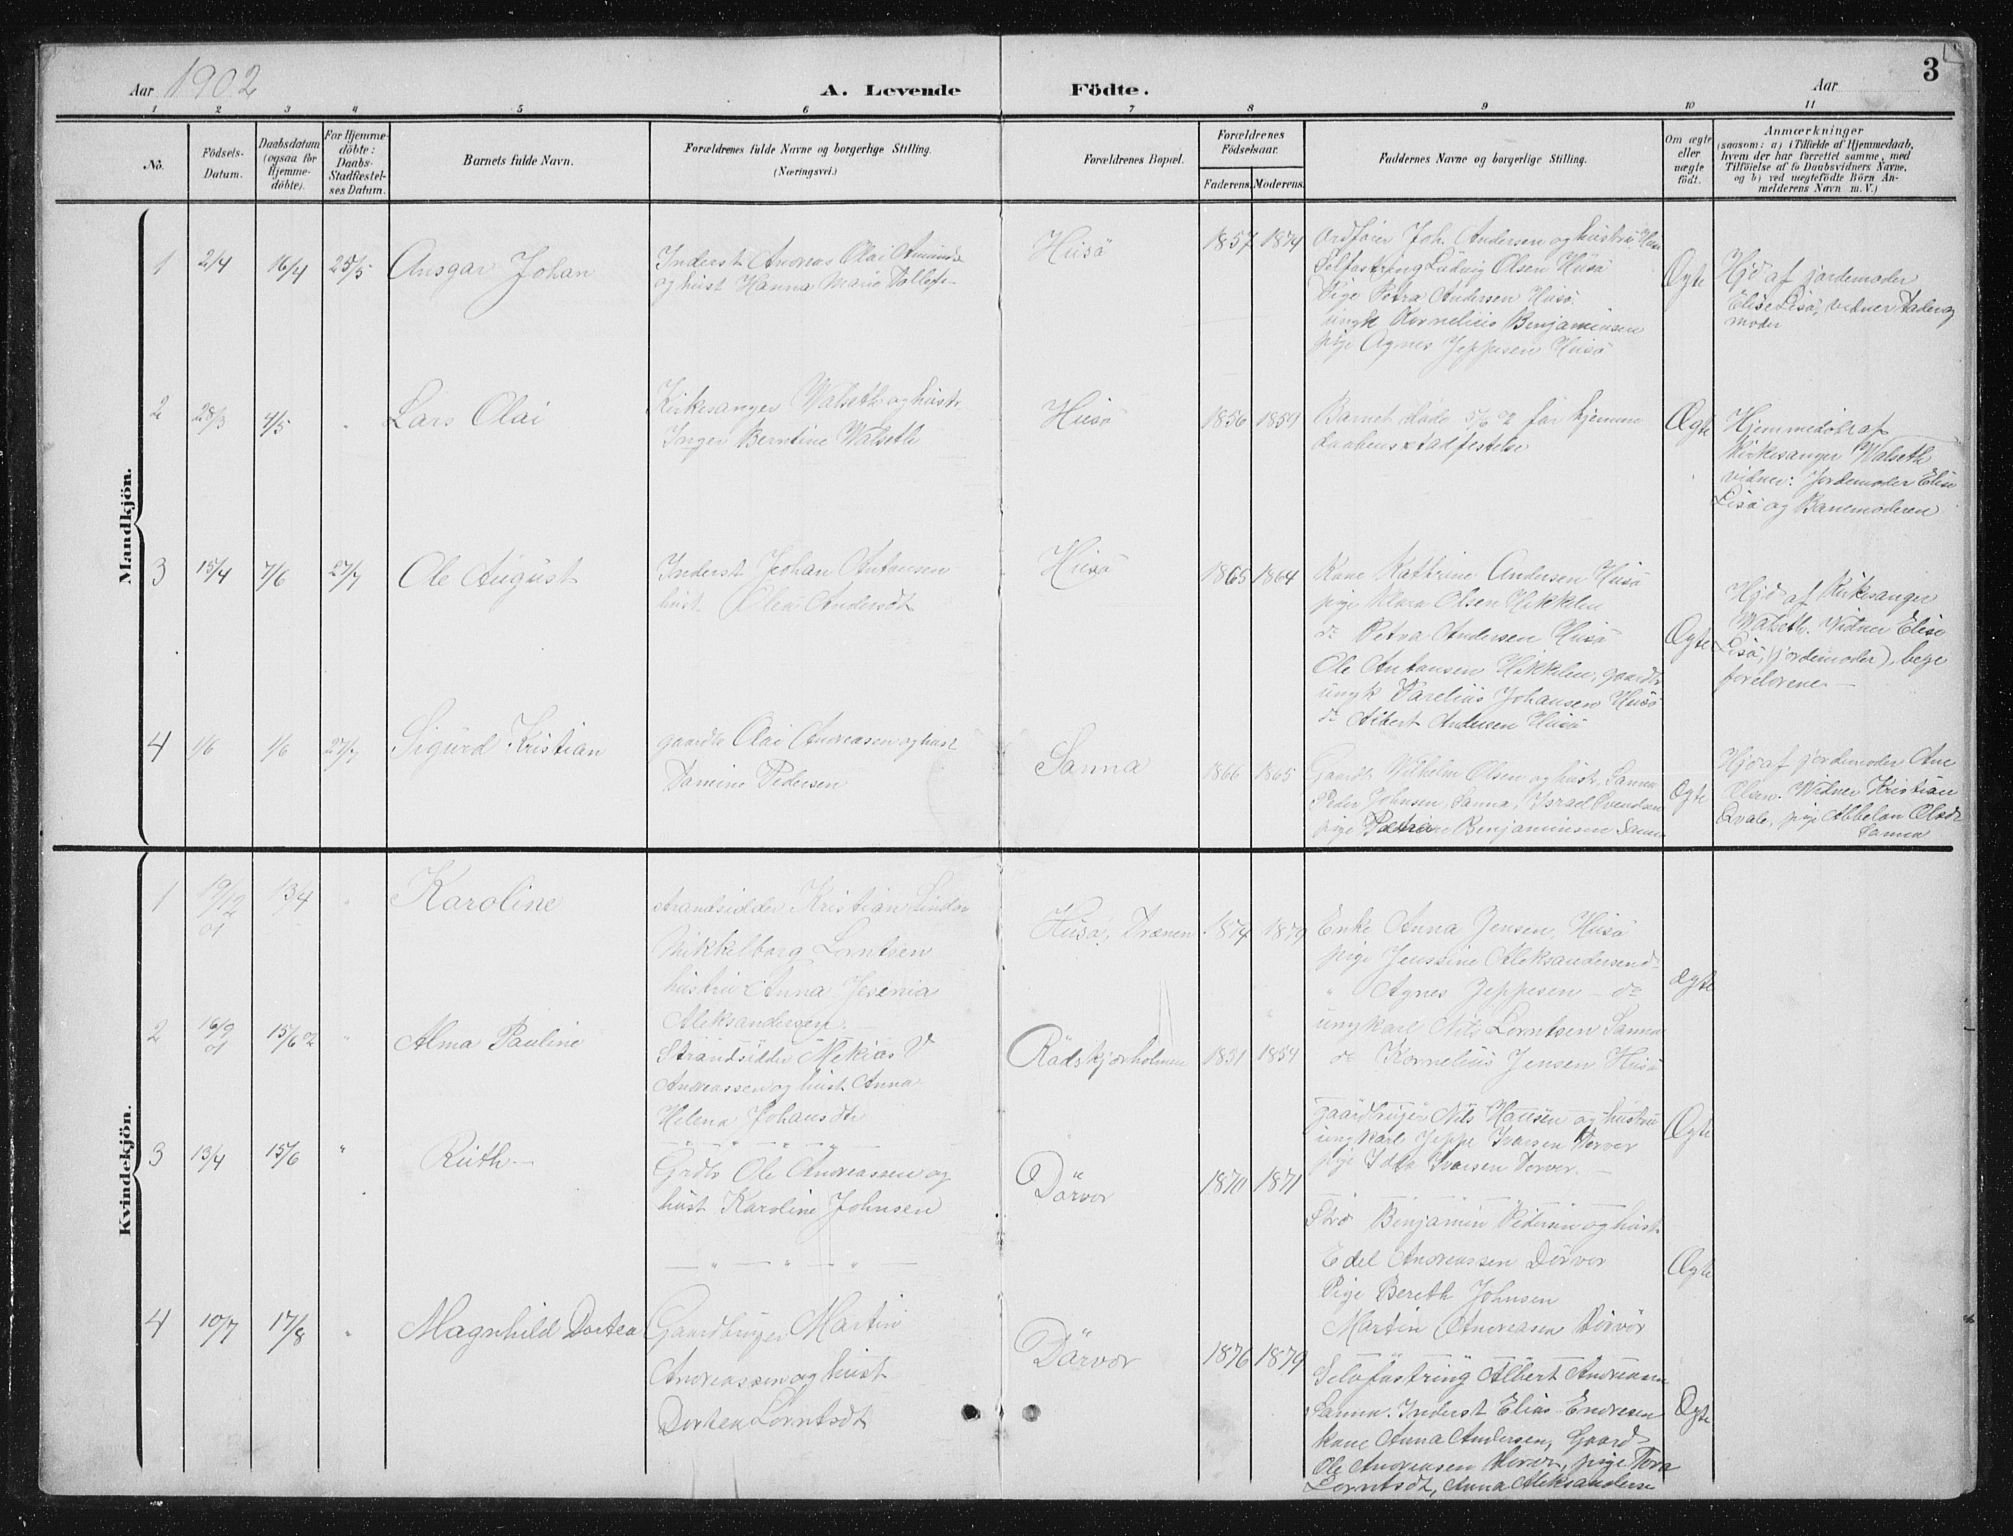 Aar 1902
A. Levende Födte.
Aar
3
1 2 3 4 5 6 7 8 9 10 11
No.
Födsels-
Datum.
Daabsdatum
(ogsaa for
Hjemme-
döbte).
For Hjemme-
döbte:
Daabs-
Stadfæstel-
ses Datum.
Barnets fulde Navn.
Forældrenes fulde Navne og borgerlige Stilling.
(Næringsvei.)
Forældrenes Bopæl.
Forældrenes
Födselsaar.
Faderens. Moderens.
Faddernes Navne og borgerlige Stilling.
Om ægte
eller
uægte
födt.
Anmærkninger
(saasom: a) i Tilfælde af Hjemmedaab,
hvem der har forrettet samme, med
Tilföielse af to Daabsvidners Navne,
og b) ved uægtefödte Börn An-
melderens Navn m. V.)
Mandkjön.
1 2/4 16/4 25/5 Ansgar Johan
Inderst Andreas Olai Amunds
og hust Hanna Marie Tollefs
Husö
1857 1874
Ordfører Joh. Andersen og hustru
Selfostring Ludvig Olsen Husö
Pige Petra Andersen Husö
ungk Kornelius Benjaminsen
pige Agnes Jeppesen Husö
Ægte
Hjd af jordemoder
Elise Lisö, vidner Fader og
moder
2 28/3 4/5 " Lars Olai
Kirkesanger Walseth og hustr
Inger Berntine Walseth
Husö
1856 1859
Barnet døde 5/6 02 før hjemme
daabens stadfestelse
Ægte
Hjemmedöbt af
Kirkesanger Walseth
vidner: Jordemoder Elise
Lisö og Barnemoderen
3 15/4 7/6 27/7 Ole August
Inderst Johan Antonsen
hust Olea Andersdt
Husö
1865 1864
Kone Kathrine Andersen Husö
pige Klara Olsen Hikkelen
do Petra Andersen Husö
Ole Antonsen Hikkelen, gaardbr
ungk Parelius Johansen Husö
do Albert Andersen Husö
Ægte
Hjd af Kirkesanger
Walseth. Vidner Elise
Lisö, (jordemoder), bege
forelorene.
4 1/6 1/6 27/7 Sigurd Kristian
gaardb Olai Andreasen og hust
Damine Pedersen
Sanna
1866 1865
Gaardb. Wilhelm Olsen og hust, Sanna
Peder Johnsen, Sanna, Israel Svendsen
pige Benjaminsen Sanna
Ægte
Hjd af jordemoder Ane
Olsen. Widner Kristian
Qvale, pige Abbelan Olsdt
Sanna
Kvindekjön.
1 19/12 01 13/4 " Karoline
strandsidder Kristian Lindor
Mikkelborg Lorntsen
hustru Anna Jesenia
Aleksandersen
Husö, Trænen
1874 1879
Enke Anna Jensen, Husö
pige Jenssine Aleksandersen do
" Agnes Jeppesen - do
ungkarl Nils Lorntsen Sanna
do Kornelius Jensen Husö
ægte
2 16/9 01 15/6 02 " Alma Pauline
Strandsidder Mekias V
Andreassen og hust Anna
Helena Johansdtr
Rödskjærholmen
1851 1854
gaardbruger Nils Hansen og hustru
ungkarl Jeppe Ivarsen Torvær
pige Ida Ivarsen Torvær.
Ægte
3 13/4 15/6 " Ruth
Grdb Ole Andreassen og
hust Karoline Johnsen
Dörvær
1870 1871
Benjamin Pedersen og hust
Edel Andreassen Dörvær
Pige Bereth Johnsen
Martin Andreasen Dörvær
Ægte
4 10/7 17/8 " Magnhild Dortea
Gaardbruger Martin
Andreassen og hust
Dortea Lorntsdt
Dörvær
1876 1879
Selvfostring Albert Andreasen
Sanna. Inderst Elias Endresen
kone Anna Andersen, Gaard
Ole Andreasen Dörvær, pige Tora
Lorntsdt, Anna Aleksanderse
Ægte